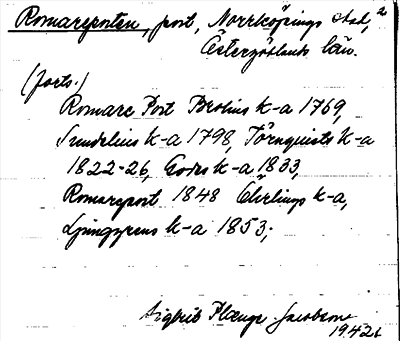 Romareporten, port, Norrköpings stad, 2
Östergötlands län.
(forts.)
Romare Port Brolius k-a 1769,
Sundelius k-a 1798, Törnquists k-a
1822-26, Godes k-a 1833,
Romareport 1848 Öhrlings k-a,
Ljunggrens k-a 1853;
Sigbrit Plænge Jacobson
1942